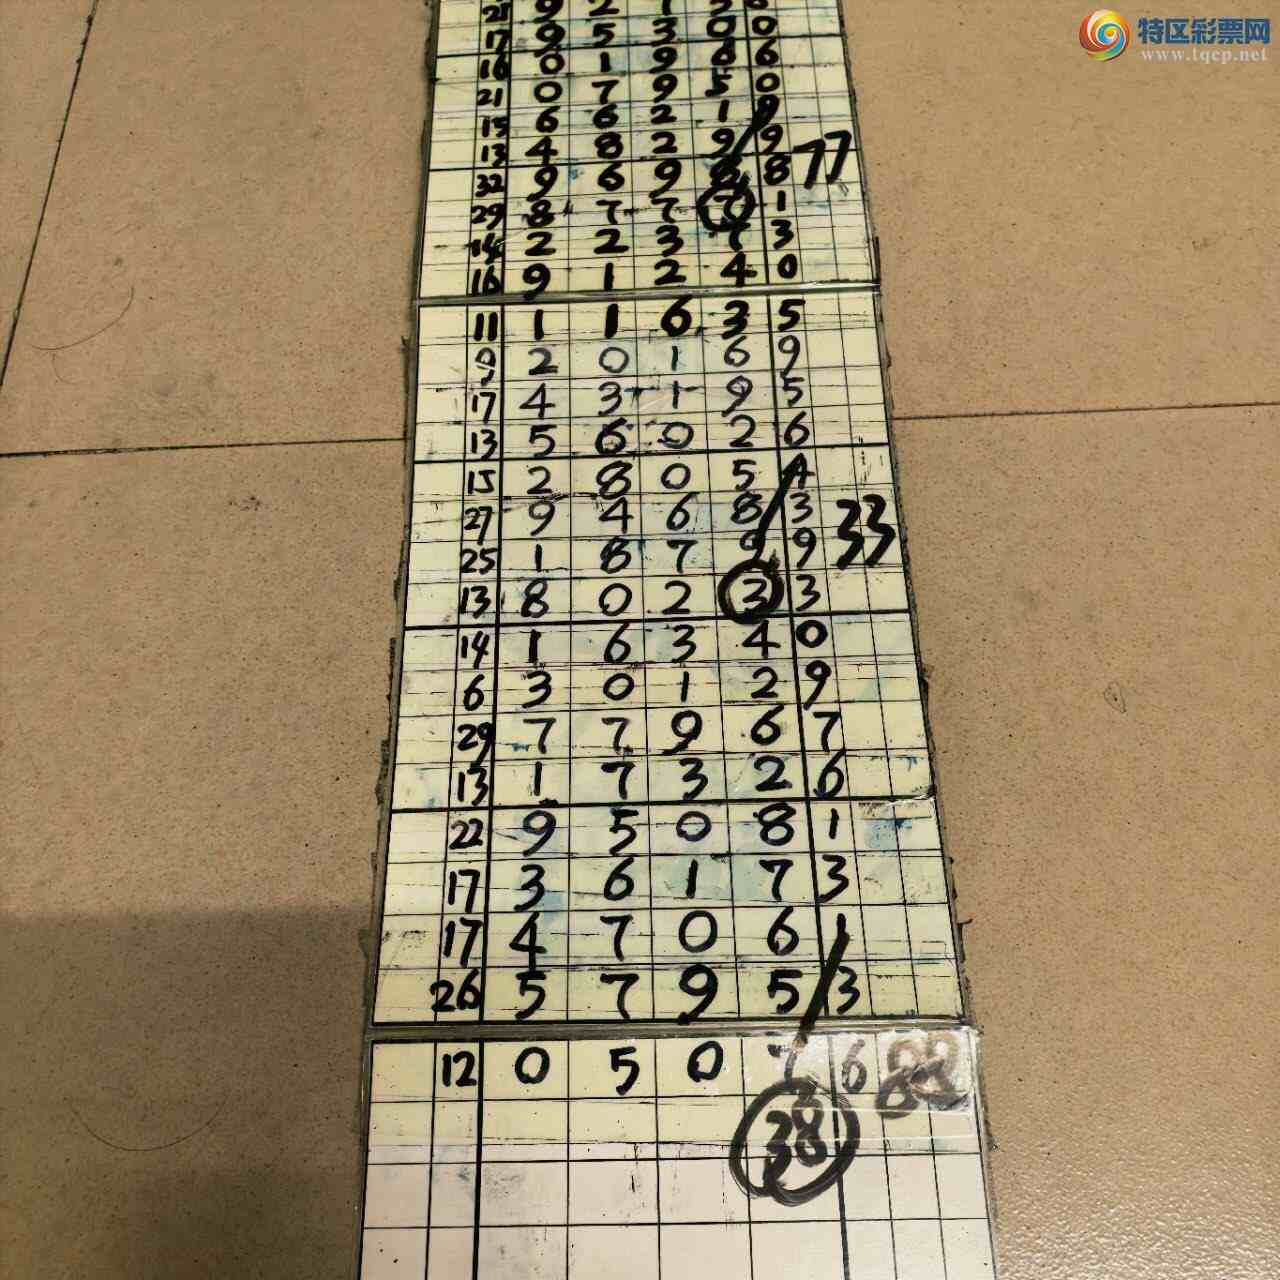 特区彩票网
www.tqcp.net
17 9 5 3 0 0
16 0 1 9 6 6
21 0 7 9 5 0
15 6 6 2 1 9
13 4 8 2 9 9
77
32 9 6 9 8 8
29 8 7 7 7 1
14 2 2 3 7 3
16 9 1 2 4 0
11 1 1 6 3 5
9 2 0 1 6 9
17 4 3 1 9 5
13 5 6 0 2 6
15 2 8 0 5 4
27 9 4 6 8 3
33
25 1 8 7 9 9
13 8 0 2 3 3
14 1 6 3 4 0
6 3 0 1 2 9
29 7 7 9 6 7
13 1 7 3 2 6
22 9 5 0 8 1
17 3 6 1 7 3
17 4 7 0 6 1
26 5 7 9 5 3
12 0 5 0 7 6 88
38